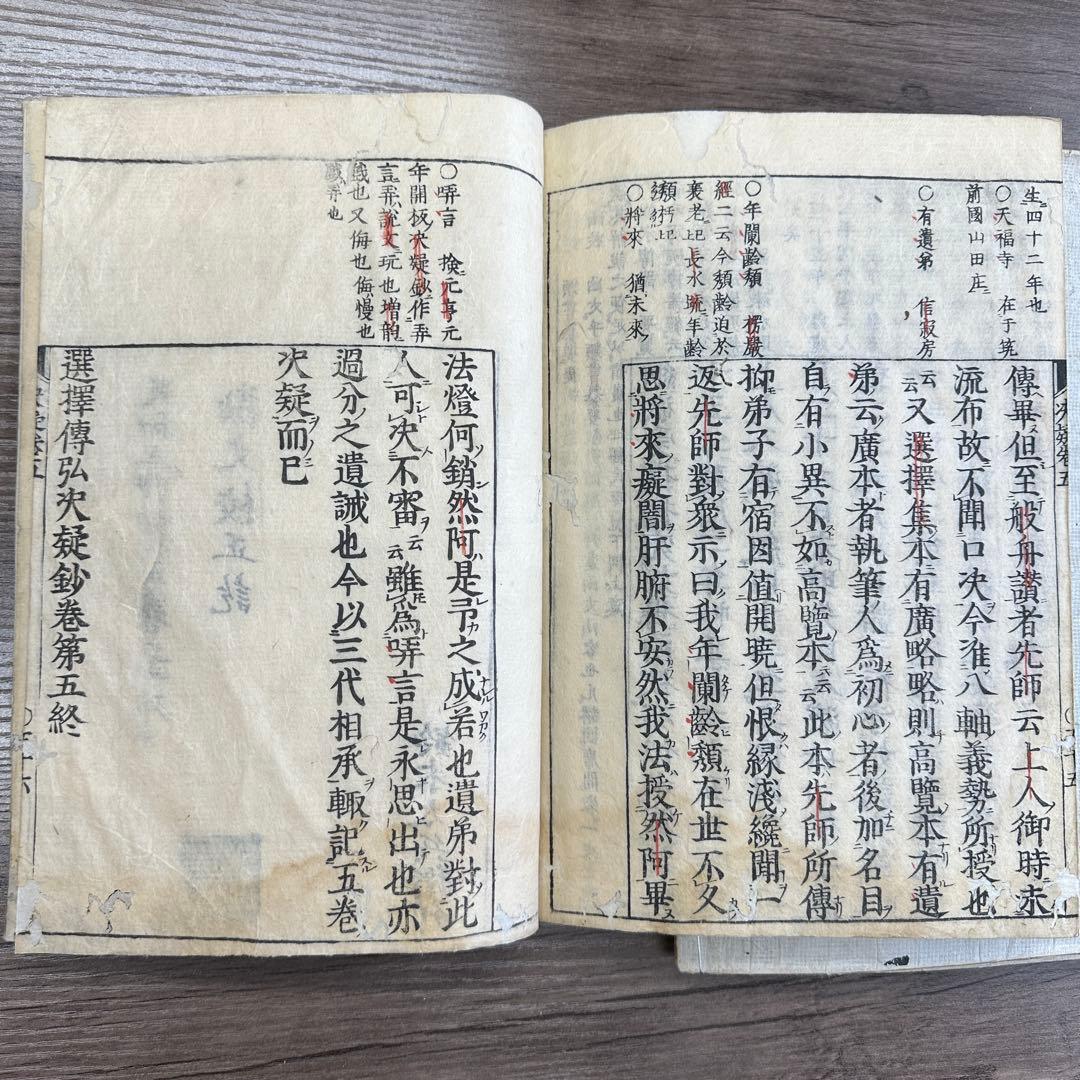 生四十二年也
○天福寺 在于筑
前國山田庄
○有遺弟 信寂房
○年闌齡頽 楞嚴
經二云今頽齡迫於
衰老上巳長水疏年齡
頽朽上巳
○將來 猶未來
傳畢但至般舟讃者先師云上人御時未
流布故不聞口决今准八軸義勢所授也
云云又選擇集本有廣略略則高覽本有遺
弟云廣本者執筆人爲初心者後加名目
自有小異不如高覽本云云此本先師所傳
抑弟子有宿因值開曉但恨縁淺纔聞一
返先師對衆示曰我年闌齡頽在世不久
思將來癡闇肝腑不安然我法授然阿畢
○哢言 撿元亨元
年開板决疑鈔作弄
言弄說文玩也增韵
戲也又侮也侮慢也
弄也
法燈何銷然阿是予之成若也遺弟對此
人可决不審云云雖爲哢言是永思出也亦
過分之遺誡也今以三代相承輙記五卷
决疑而已
選擇傳弘决疑鈔卷第五終